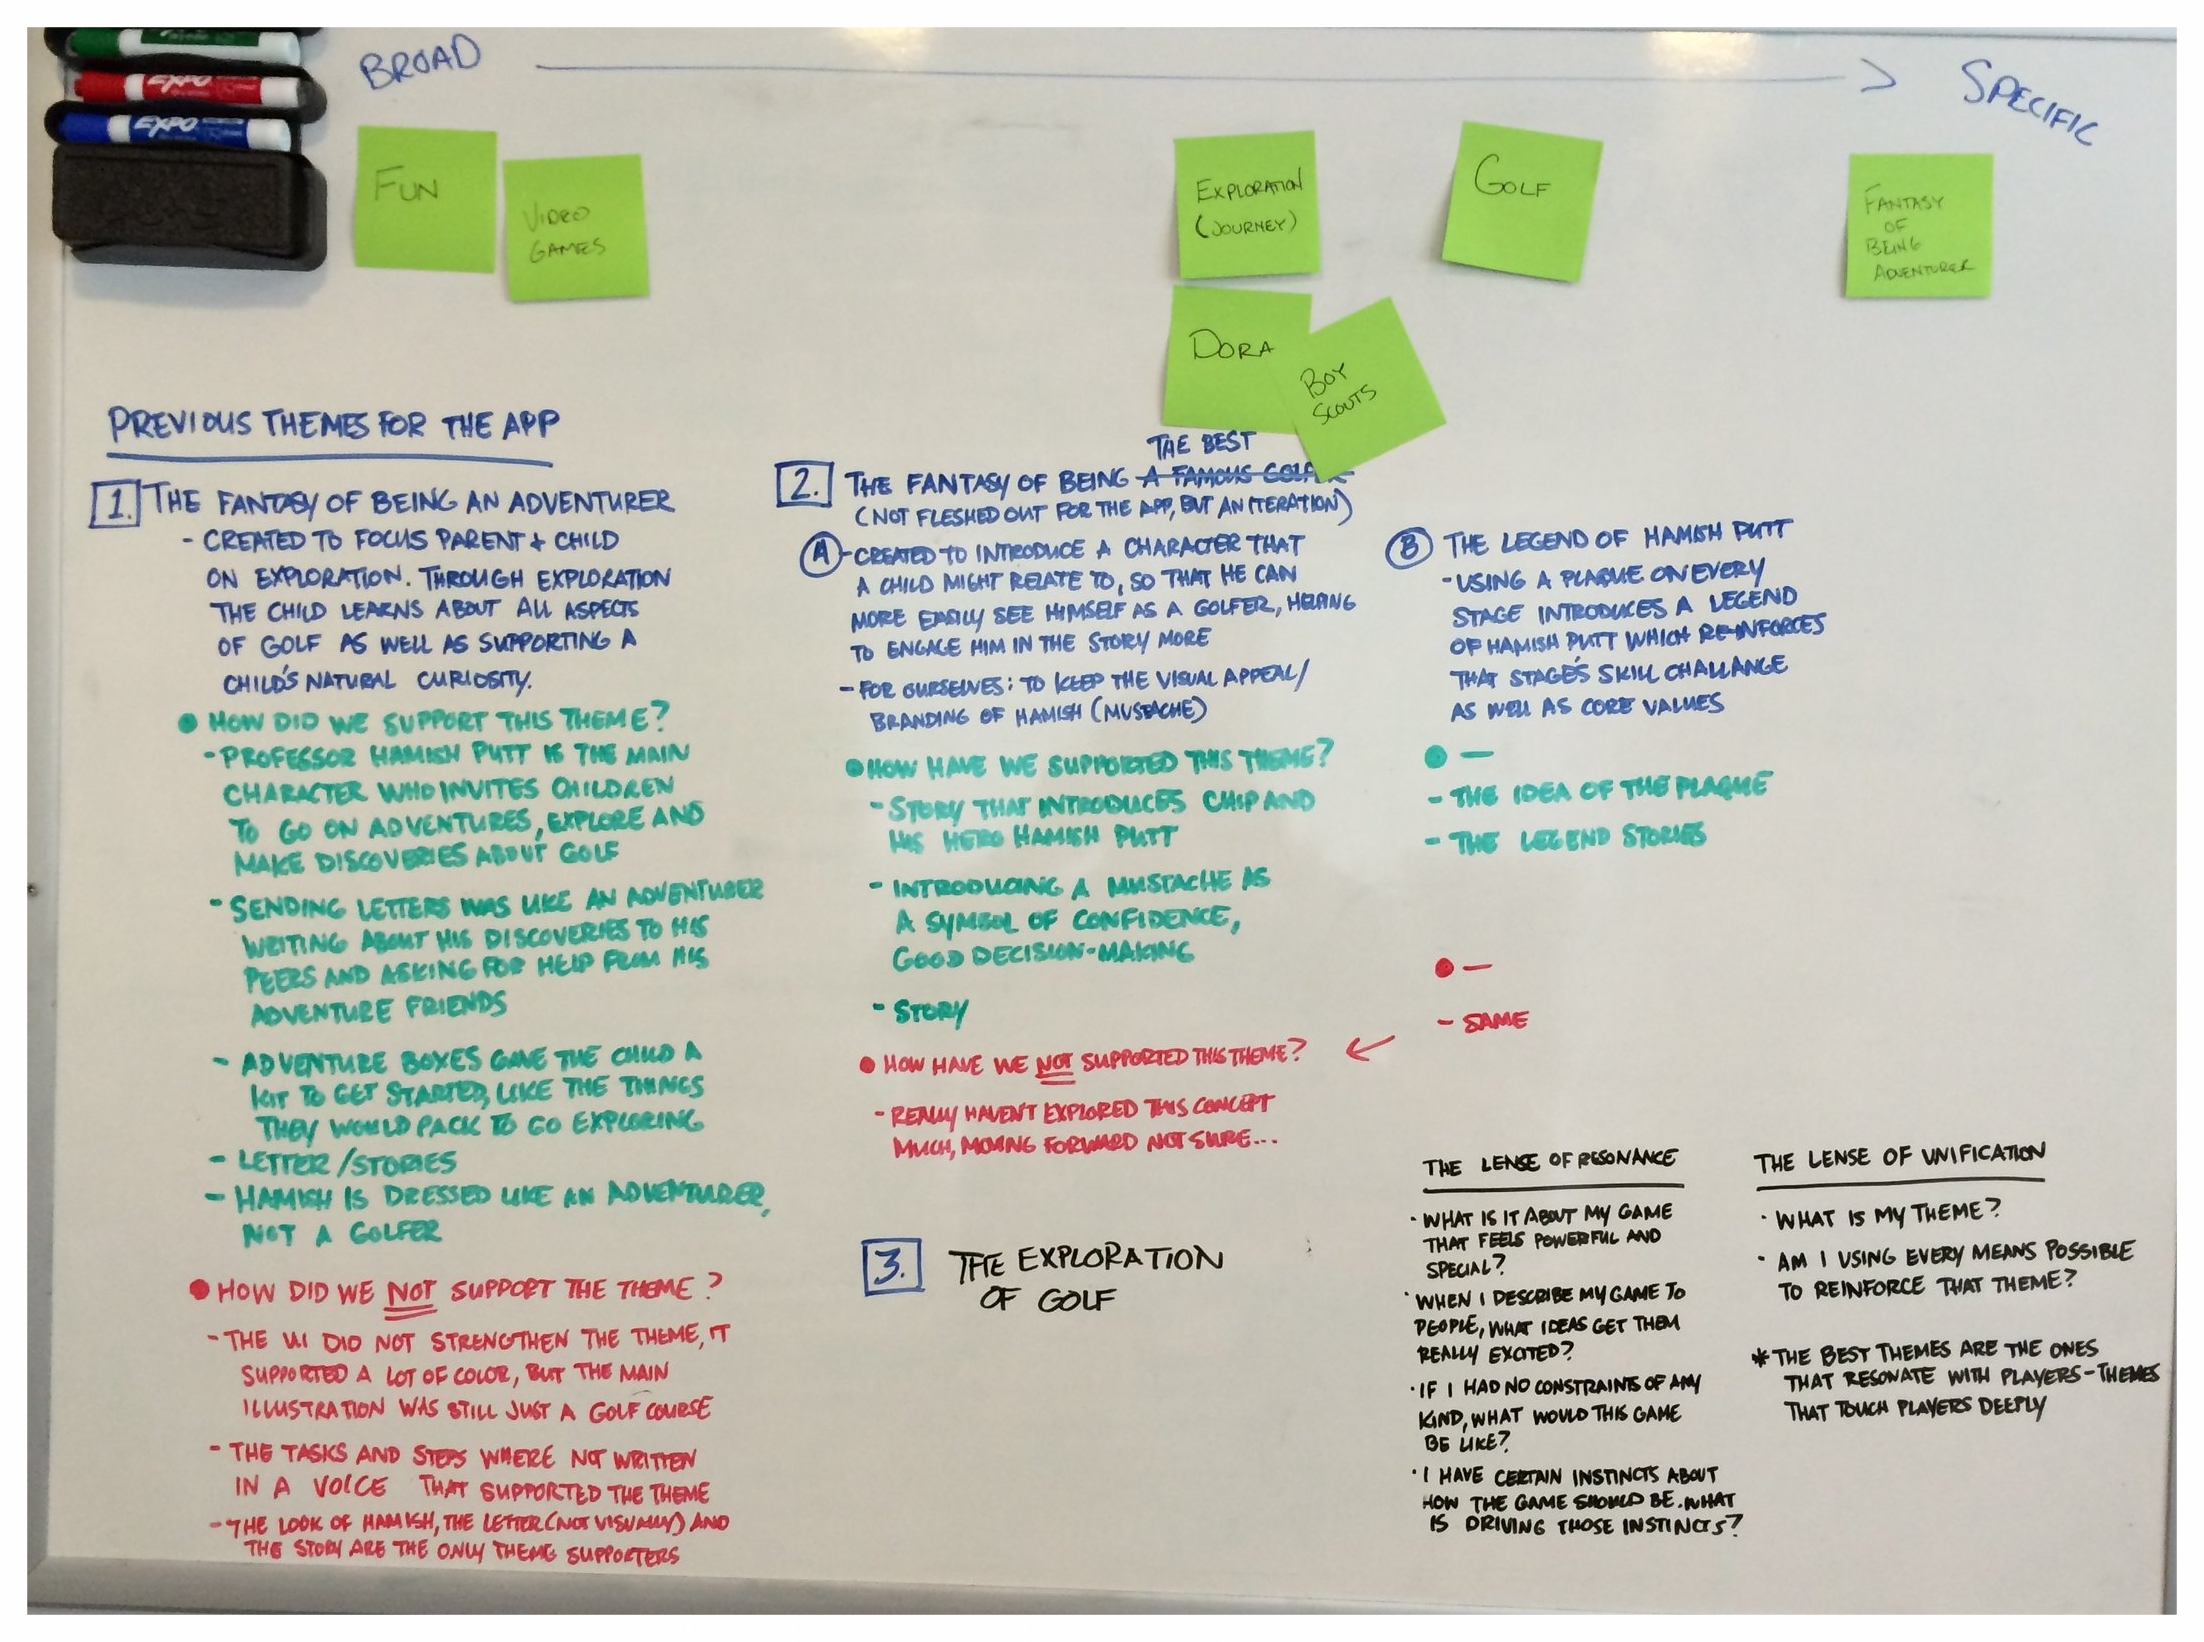 BROAD
SPECIFIC
EXPO
EXPO
FUN
VIDEO
GAMES
EXPLORATION
(JOURNEY)
GOLF
FANTASY
OF
BEING
ADVENTURER
DORA
BOY
SCOUTS
PREVIOUS THEMES FOR THE APP
1. THE FANTASY OF BEING AN ADVENTURER
- CREATED TO FOCUS PARENT + CHILD
ON EXPLORATION. THROUGH EXPLORATION
THE CHILD LEARNS ABOUT ALL ASPECTS
OF GOLF AS WELL AS SUPPORTING A
CHILD'S NATURAL CURIOSITY.
• HOW DID WE SUPPORT THIS THEME?
- PROFESSOR HAMISH PUTT IS THE MAIN
CHARACTER WHO INVITES CHILDREN
TO GO ON ADVENTURES, EXPLORE AND
MAKE DISCOVERIES ABOUT GOLF
- SENDING LETTERS WAS LIKE AN ADVENTURER
WRITING ABOUT HIS DISCOVERIES TO HIS
PEERS AND ASKING FOR HELP FROM HIS
ADVENTURE FRIENDS
- ADVENTURE BOXES GAVE THE CHILD A
KIT TO GET STARTED, LIKE THE THINGS
THEY WOULD PACK TO GO EXPLORING
- LETTER/STORIES
- HAMISH IS DRESSED LIKE AN ADVENTURER,
NOT A GOLFER
• HOW DID WE NOT SUPPORT THE THEME?
- THE UI DID NOT STRENGTHEN THE THEME, IT
SUPPORTED A LOT OF COLOR, BUT THE MAIN
ILLUSTRATION WAS STILL JUST A GOLF COURSE
- THE TASKS AND STEPS WHERE NOT WRITTEN
IN A VOICE THAT SUPPORTED THE THEME
- THE LOOK OF HAMISH, THE LETTER (NOT VISUALLY) AND
THE STORY ARE THE ONLY THEME SUPPORTERS
THE BEST
2. THE FANTASY OF BEING A FAMOUS
(NOT FLESHED OUT FOR THE APP, BUT AN ITERATION)
A - CREATED TO INTRODUCE A CHARACTER THAT
A CHILD MIGHT RELATE TO, SO THAT HE CAN
MORE EASILY SEE HIMSELF AS A GOLFER, HELPING
TO ENGAGE HIM IN THE STORY MORE
- FOR OURSELVES: TO KEEP THE VISUAL APPEAL/
BRANDING OF HAMISH (MUSTACHE)
• HOW HAVE WE SUPPORTED THIS THEME?
- STORY THAT INTRODUCES CHIP AND
HIS HERO HAMISH PUTT
- INTRODUCING A MUSTACHE AS
A SYMBOL OF CONFIDENCE,
GOOD DECISION-MAKING
- STORY
• HOW HAVE WE NOT SUPPORTED THIS THEME?
- REALLY HAVEN'T EXPLORED THIS CONCEPT
MUCH, MOVING FORWARD NOT SURE...
B THE LEGEND OF HAMISH PUTT
- USING A PLAQUE ON EVERY
STAGE INTRODUCES A LEGEND
OF HAMISH PUTT WHICH RE-INFORCES
THAT STAGE'S SKILL CHALLANGE
AS WELL AS CORE VALUES
• —
- THE IDEA OF THE PLAQUE
- THE LEGEND STORIES
• —
- SAME
3. THE EXPLORATION
OF GOLF
THE LENSE OF RESONANCE
• WHAT IS IT ABOUT MY GAME
THAT FEELS POWERFUL AND
SPECIAL?
• WHEN I DESCRIBE MY GAME TO
PEOPLE, WHAT IDEAS GET THEM
REALLY EXCITED?
• IF I HAD NO CONSTRAINTS OF ANY
KIND, WHAT WOULD THIS GAME
BE LIKE?
• I HAVE CERTAIN INSTINCTS ABOUT
HOW THE GAME SHOULD BE. WHAT
IS DRIVING THOSE INSTINCTS?
THE LENSE OF UNIFICATION
• WHAT IS MY THEME?
• AM I USING EVERY MEANS POSSIBLE
TO REINFORCE THAT THEME?
* THE BEST THEMES ARE THE ONES
THAT RESONATE WITH PLAYERS - THEMES
THAT TOUCH PLAYERS DEEPLY